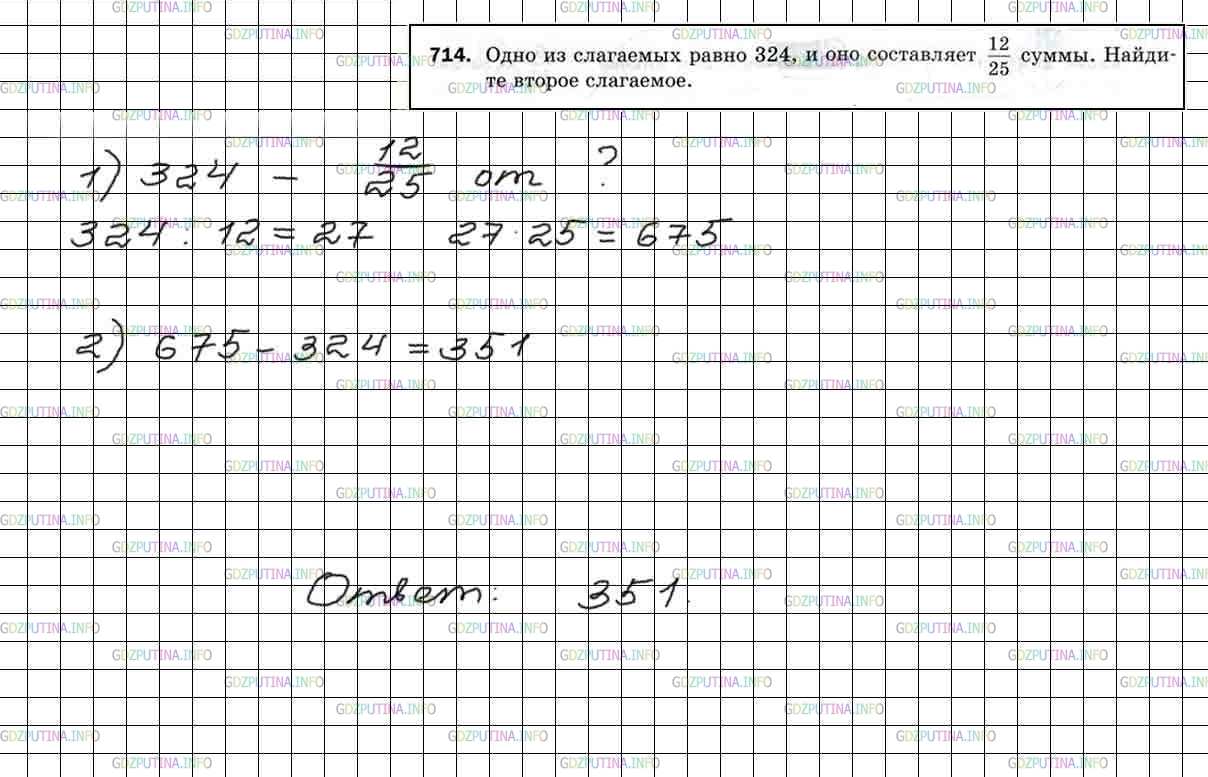 714. Одно из слагаемых равно 324, и оно составляет 12/25 суммы. Найди-
те второе слагаемое.
1) 324 - 12/25 от ?
324 : 12 = 27 27 · 25 = 675
2) 675 - 324 = 351
Ответ: 351.
GDZPUTINA.INFO